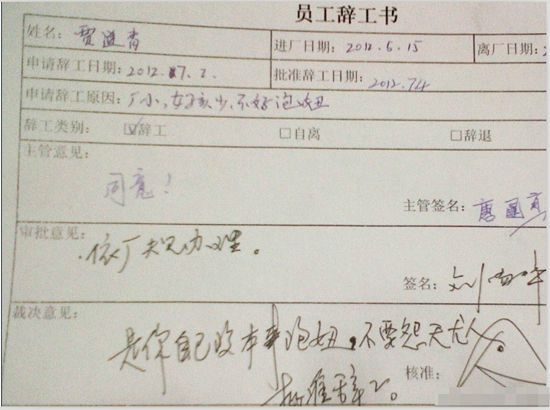 员工辞工书
姓名：贾进青 进厂日期：2012.6.15 离厂日期：
申请辞工日期：2012.7.2. 批准辞工日期：2012.7.4
申请辞工原因：厂小，女孩少，不好泡妞
辞工类别： ☑辞工 □自离 □辞退
主管意见：
同意！
主管签名：唐
审批意见：
依厂规办理。
签名：刘
裁决意见：
是你自己没本事泡妞，不要怨天尤人
核准：
批准辞工。